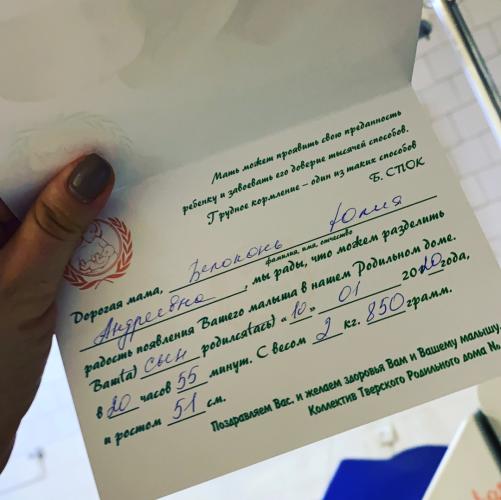 Мать может проявить свою преданность
ребенку и завоевать его доверие тысячей способов.
Грудное кормление – один из таких способов
Б. СПОК
Дорогая мама, Белоконь Юлия
фамилия, имя, отчество
Андреевна, мы рады, что можем разделить
радость появления Вашего малыша в нашем Родильном доме.
Ваш(а) сын родился(ась) «10» 01 2020 года,
в 20 часов 55 минут. С весом 2 кг. 850 грамм.
и ростом 51 см.
Поздравляем Вас, и желаем здоровья Вам и Вашему малышу
Коллектив Тверского Родильного дома №